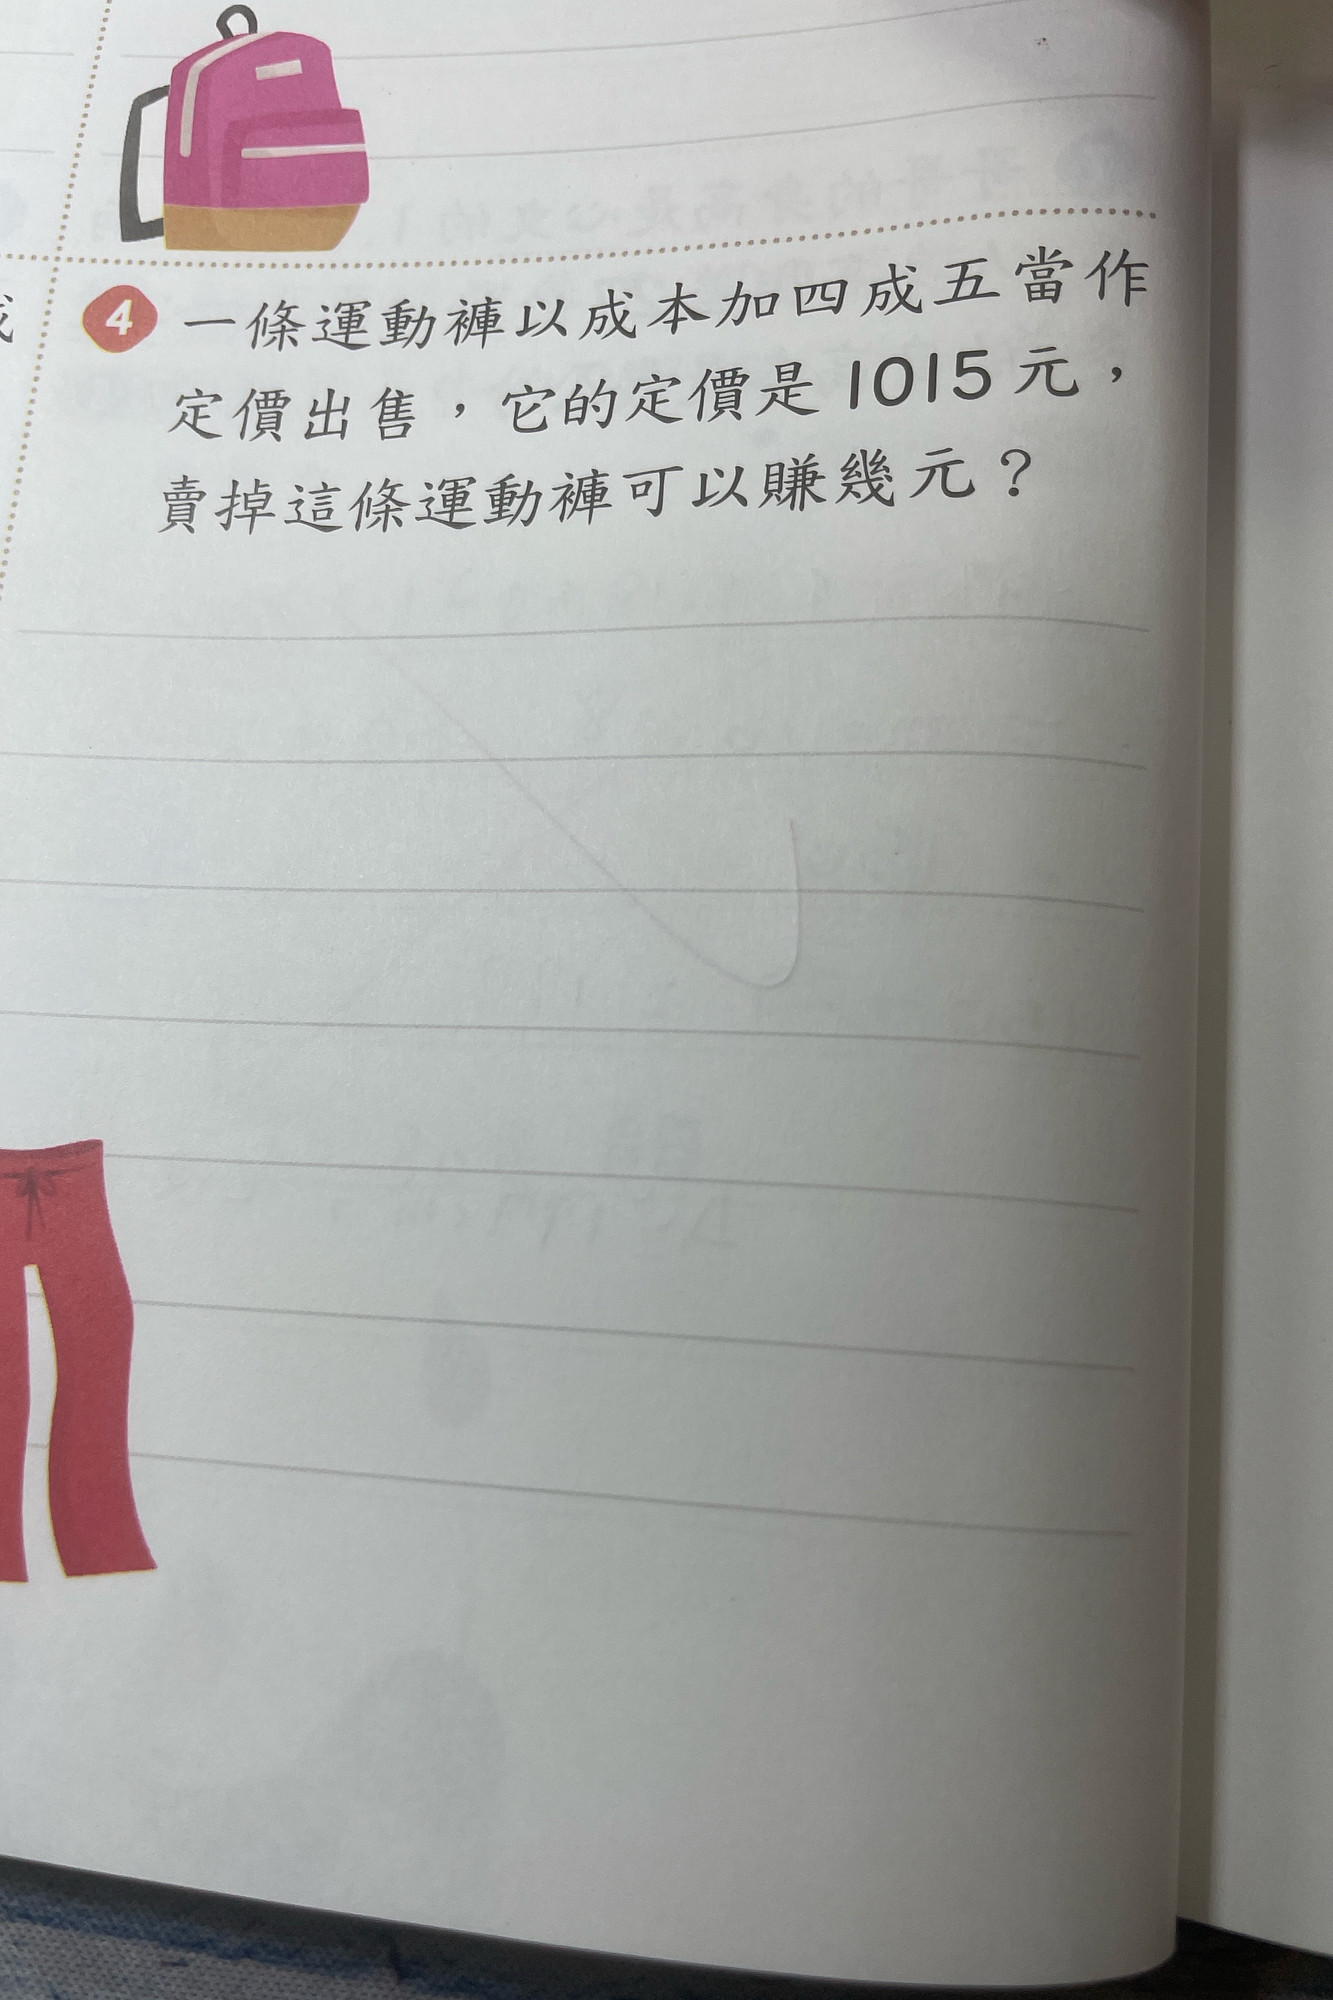 4 一條運動褲以成本加四成五當作
定價出售，它的定價是 1015 元，
賣掉這條運動褲可以賺幾元？